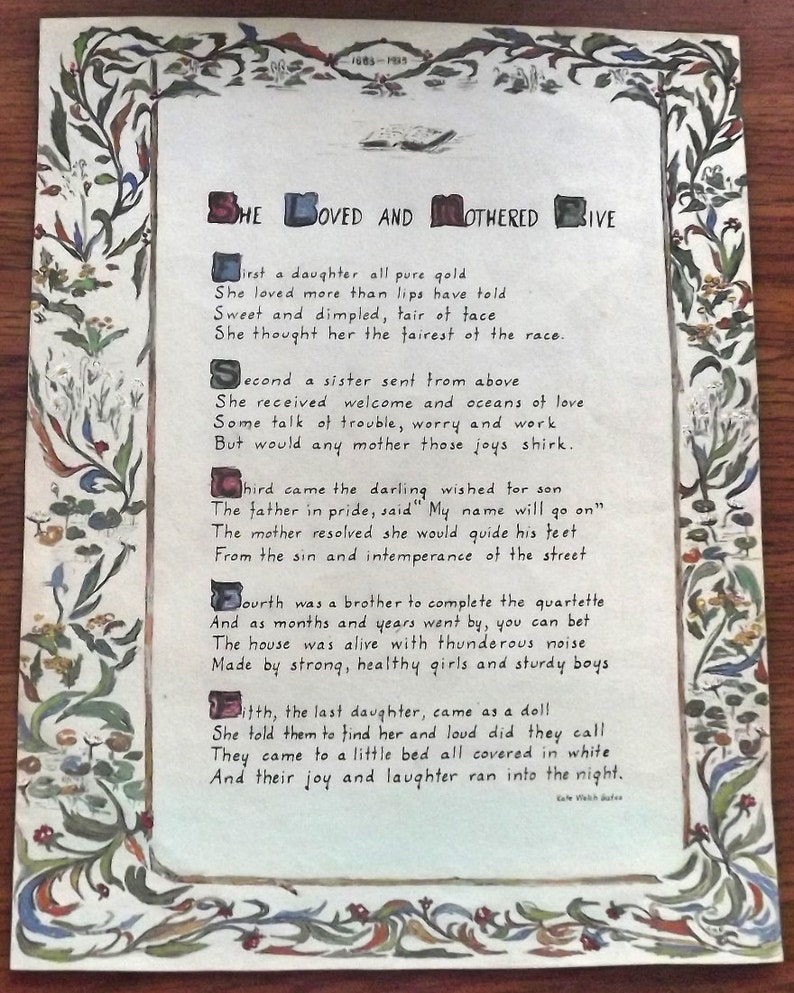 1883-1935
She Loved and Mothered Five
First a daughter all pure gold
She loved more than lips have told
Sweet and dimpled, fair of face
She thought her the fairest of the race.
Second a sister sent from above
She received welcome and oceans of love
Some talk of trouble, worry and work
But would any mother those joys shirk.
Third came the darling wished for son
The father in pride, said "My name will go on"
The mother resolved she would guide his feet
From the sin and intemperance of the street
Fourth was a brother to complete the quartette
And as months and years went by, you can bet
The house was alive with thunderous noise
Made by strong, healthy girls and sturdy boys
Fifth, the last daughter, came as a doll
She told them to find her and loud did they call
They came to a little bed all covered in white
And their joy and laughter ran into the night.
Kate Welch Gates